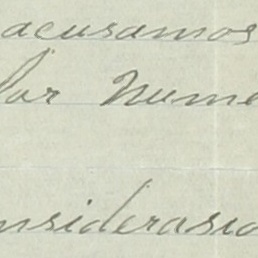 acusamos
Por Nume
nsiderasio